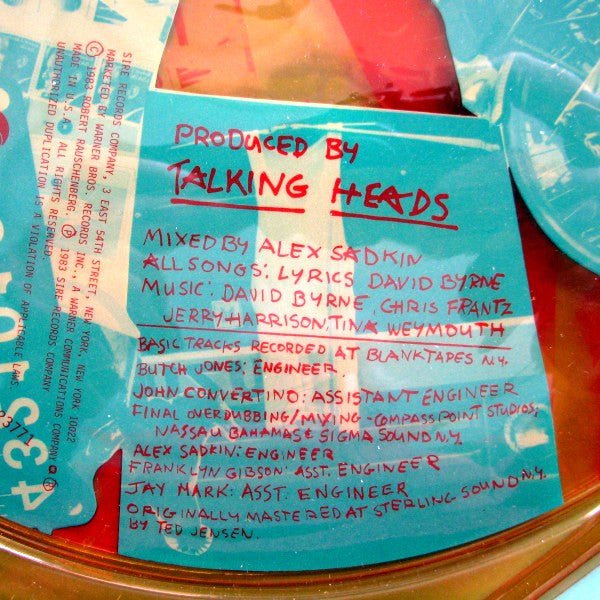 SIRE RECORDS COMPANY. 3 EAST 54TH STREET, NEW YORK, NEW YORK 10022
MARKETED BY WARNER BROS. RECORDS INC., A WARNER COMMUNICATIONS COMPANY
© 1983 ROBERT RAUSCHENBERG. ℗ 1983 SIRE RECORDS COMPANY
MADE IN U.S.A. ALL RIGHTS RESERVED.
UNAUTHORIZED DUPLICATION IS A VIOLATION OF APPLICABLE LAWS
PRODUCED BY
TALKING HEADS
MIXED BY ALEX SADKIN
ALL SONGS: LYRICS DAVID BYRNE
MUSIC: DAVID BYRNE, CHRIS FRANTZ
JERRY HARRISON, TINA WEYMOUTH
BASIC TRACKS RECORDED AT BLANKTAPES N.Y.
BUTCH JONES: ENGINEER.
JOHN CONVERTINO: ASSISTANT ENGINEER
FINAL OVERDUBBING/MIXING - COMPASS POINT STUDIOS;
NASSAU BAHAMAS & SIGMA SOUND N.Y.
ALEX SADKIN: ENGINEER
FRANKLYN GIBSON: ASST. ENGINEER
JAY MARK: ASST. ENGINEER
ORIGINALLY MASTERED AT STERLING SOUND N.Y.
BY TED JENSEN.